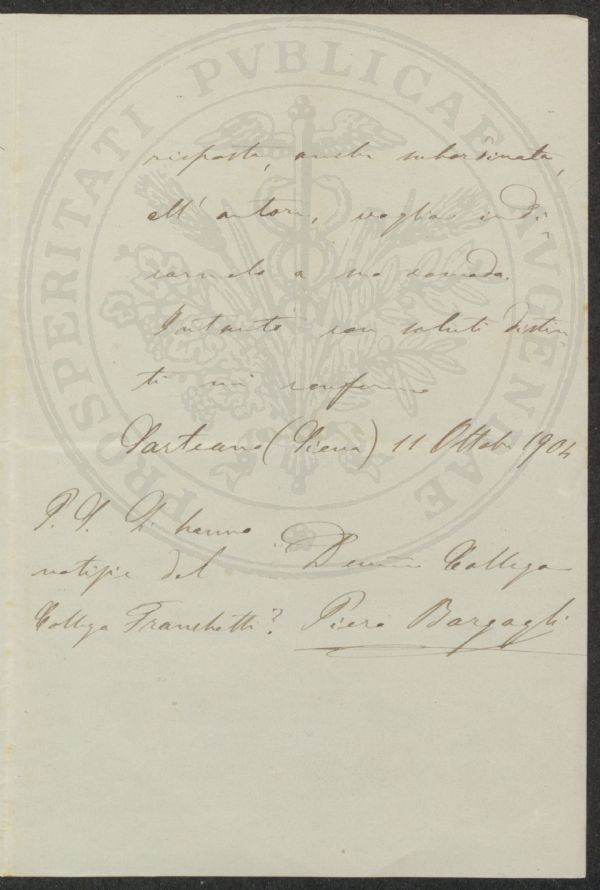 PROSPERITATI PVBLICAE AVGENDAE
risposta, anche subordinata,
all' autore, voglia indi-
carmelo a me
Intanto con saluti distin-
ti mi confermo
Sarteano (Siena) 11 Ottob. 1904
P. S. Si hanno
notizie del
Collega Franchetti?
Devmo Collega
Piero Bargagli